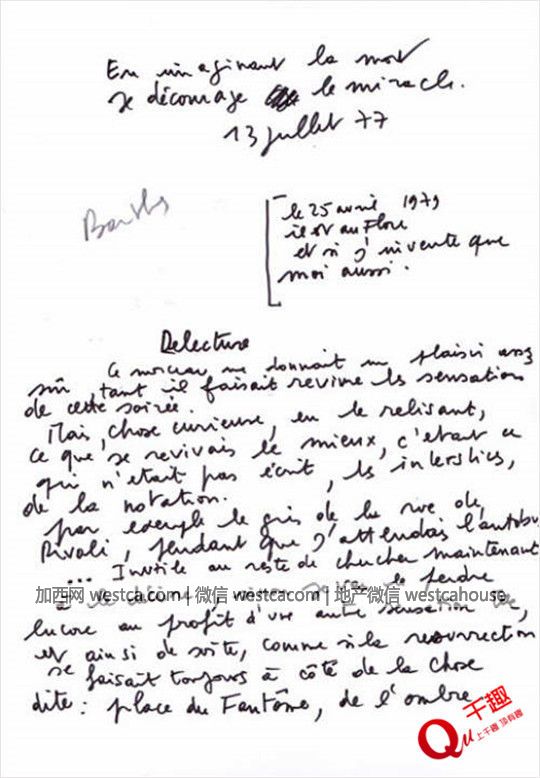 En imaginant la mort
je décourage le miracle.
13 juillet 77
Barthes
le 25 avril 1979
il est au Flore
et si j'invente que
moi aussi.
Relecture
Ce morceau me donnait un plaisir assez
sûr tant il faisait revivre les sensations
de cette soirée.
Mais, chose curieuse, en le relisant,
ce que je revivais le mieux, c'était ce
qui n'était pas écrit, les interstices,
de la notation.
par exemple le gris de la rue de
Rivoli, pendant que j'attendais l'autobus
... Inutile au reste de chercher maintenant
à le décrire, sinon je vais le perdre
加西网 westca.com | 微信 westcacom | 地产微信 westcahouse
encore au profit d'une autre sensation
et ainsi de suite, comme si la resurrection
se faisait toujours à côté de la chose
dite : place du Fantôme, de l'ombre
Qu 千趣
上千趣 顶有趣